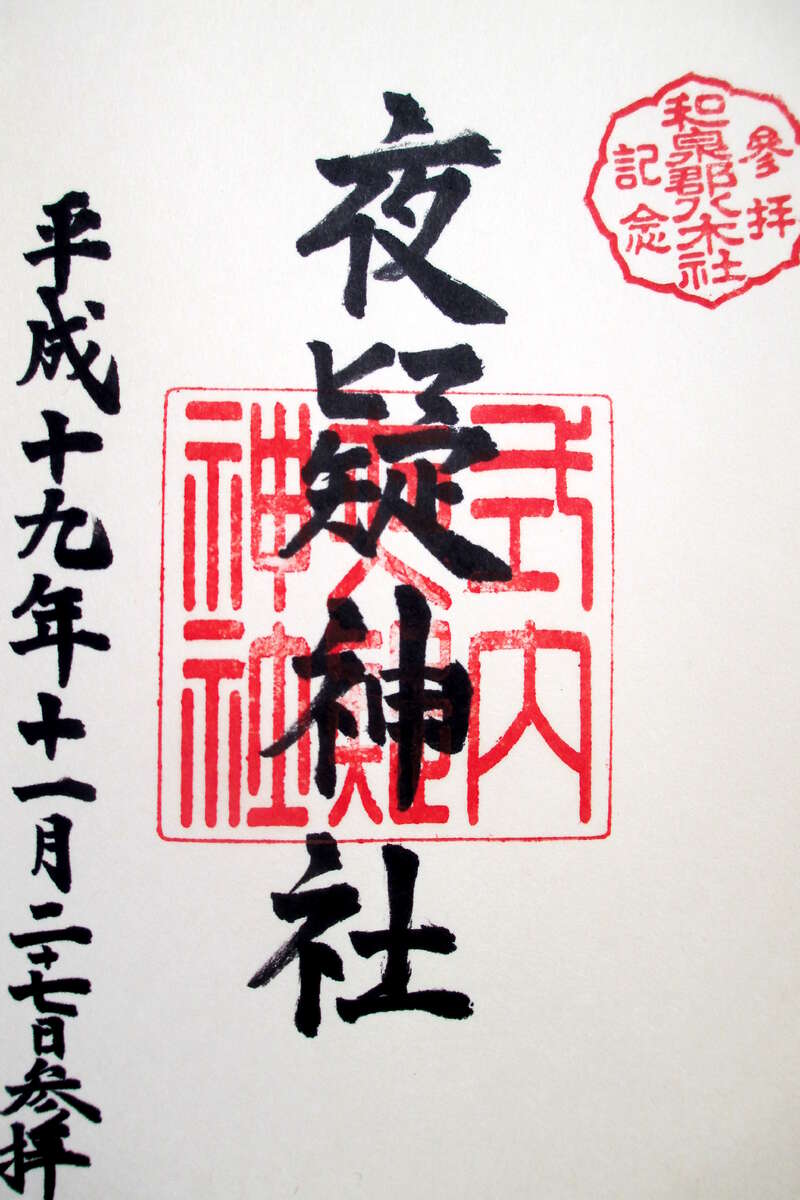 參拝
和泉郡八木社
記念
夜疑神社
式内
夜疑
神社
平成十九年十一月二十七日参拝